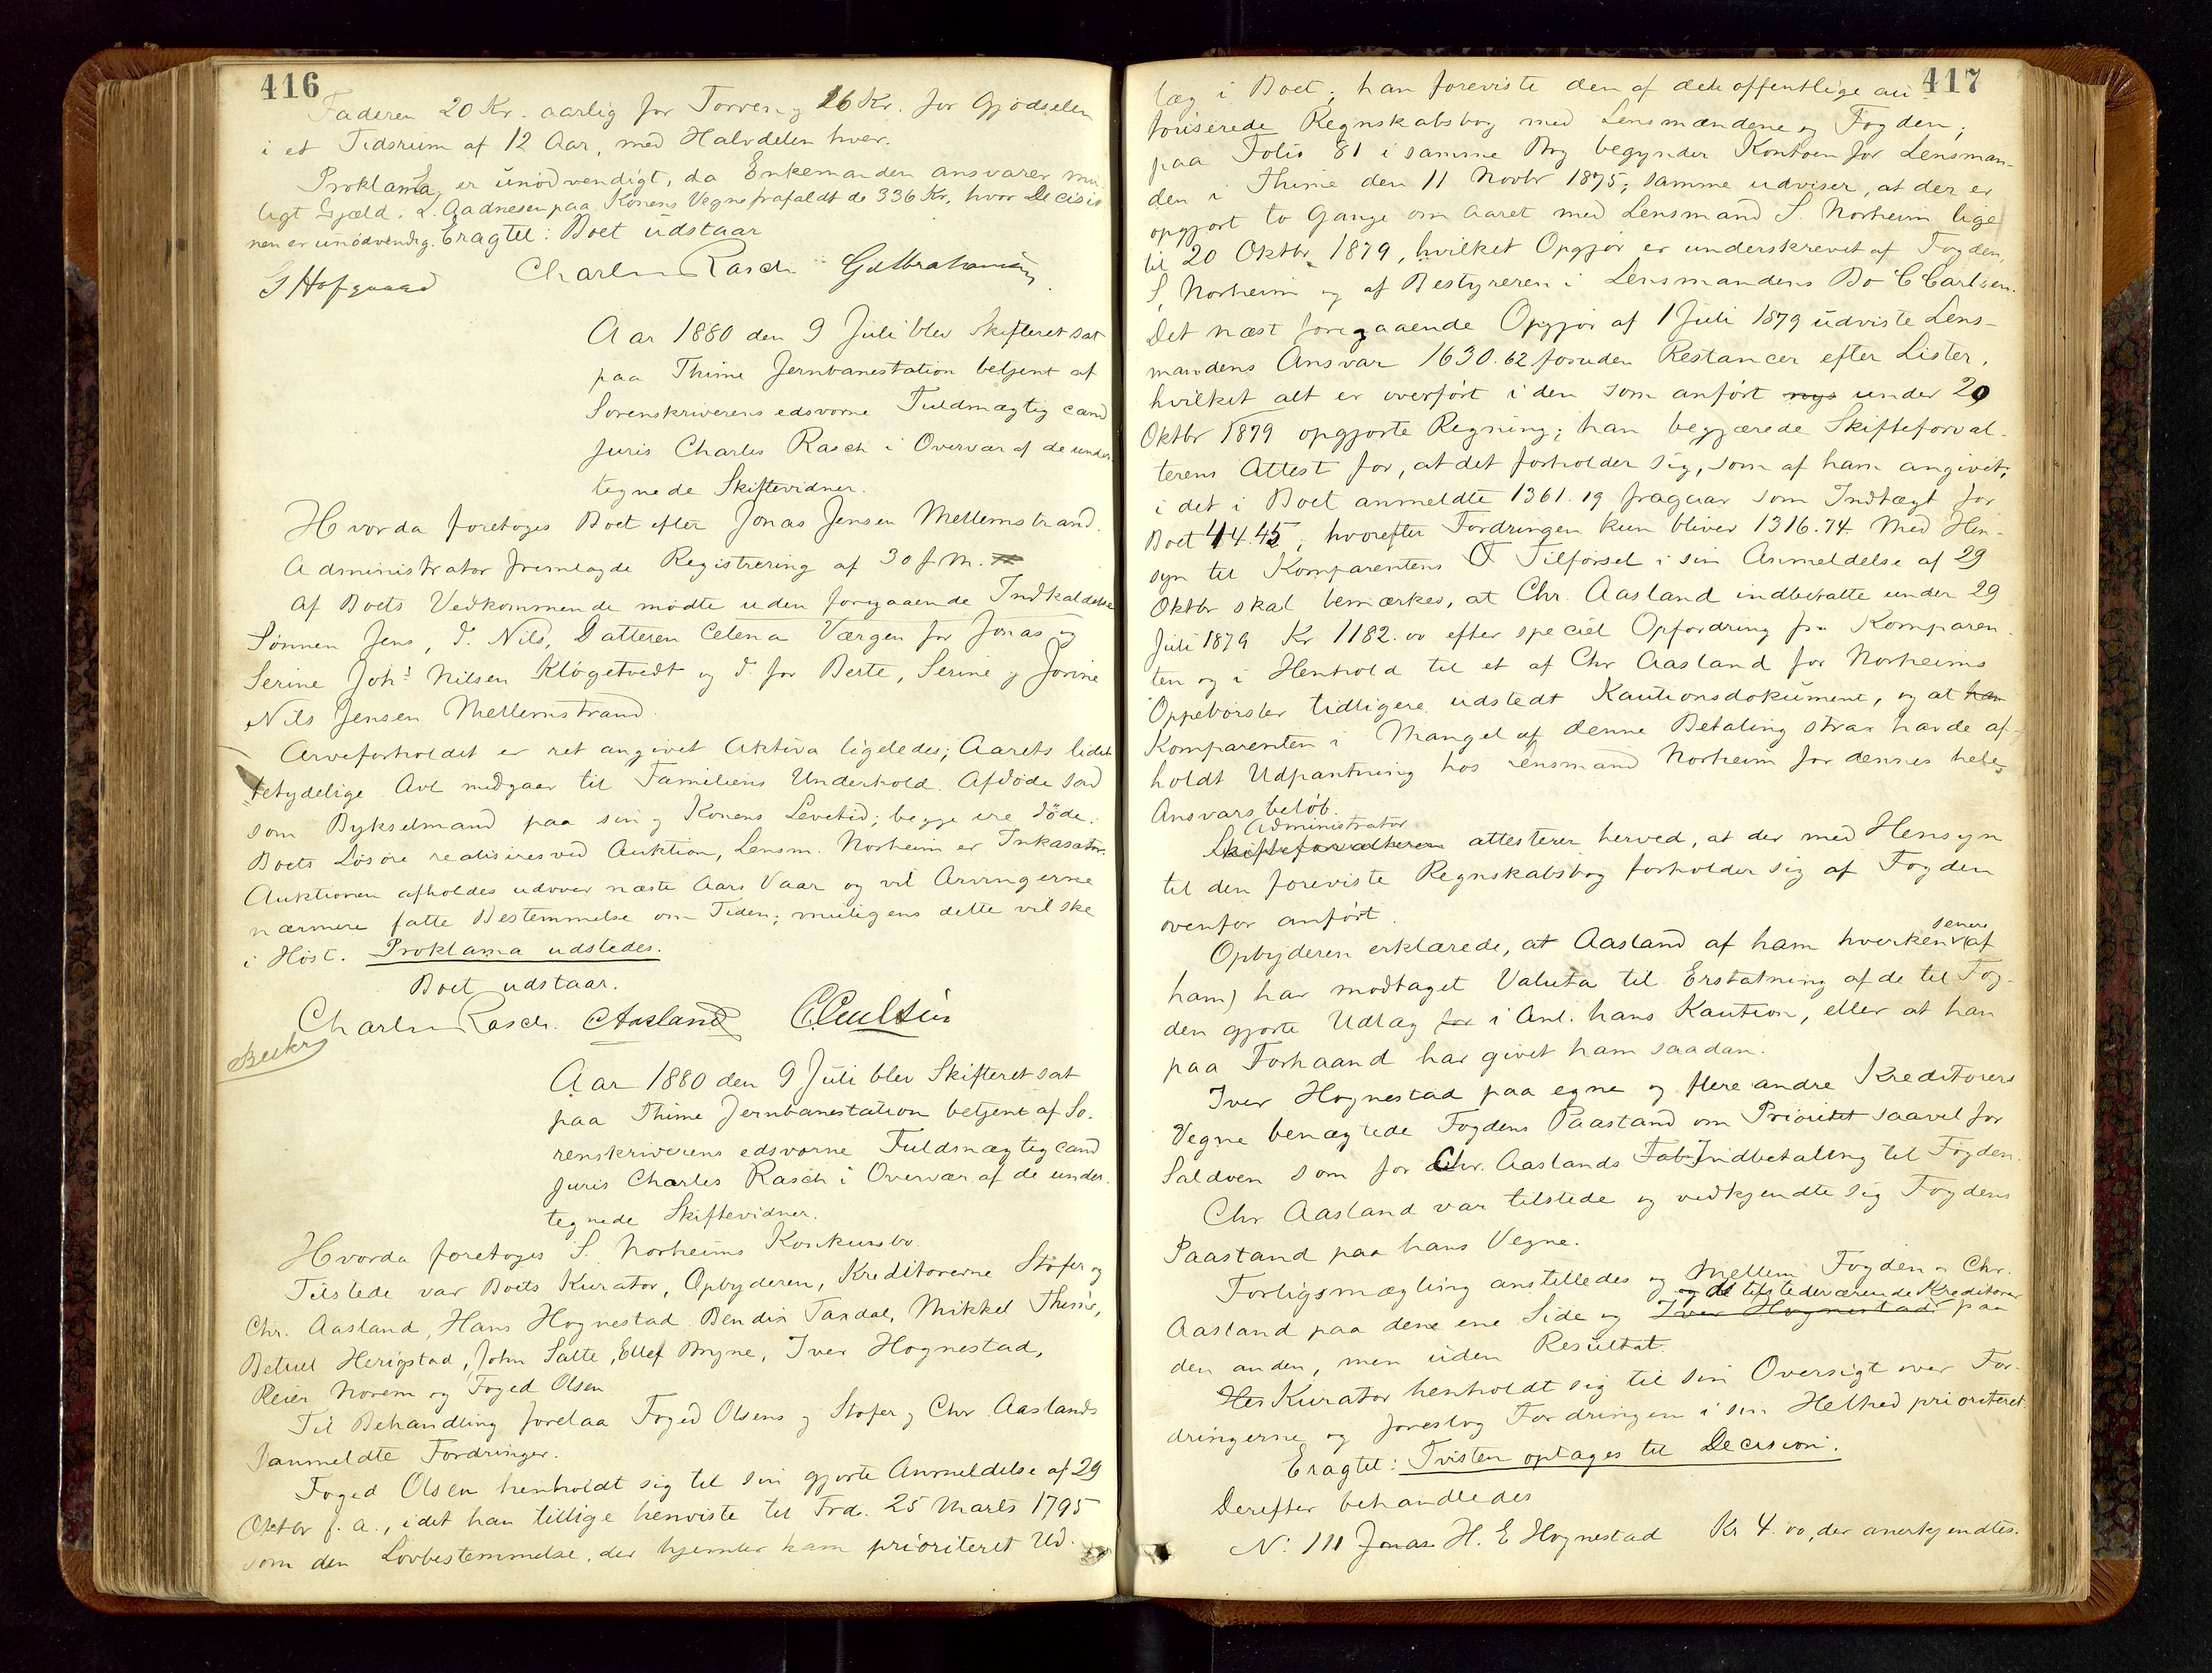 416
Faderen 20 Kr. aarlig for Torven og 26 Kr. for Gjødselen
i et Tidsrum af 12 Aar, med Halvdelen hver.
Proklama er unødvendigt, da Enkemanden ansvarer mu-
ligt Gjæld. L. Aadnesen paa Konens Vegne frafaldt de 336 Kr, hvor Decisio
nen er unødvendig. Eragtet: Boet udstaar
S Hofgaard Charles Rasch G Abrahamsen
Aar 1880 den 9 Juli blev Skifteret sat
paa Thime Jernbanestation betjent af
Sorenskriverens edsvorne Fuldmægtig cand
juris Charles Rasch i Overvær af de under-
tegnede Skiftevidner.
Hvorda foretoges Boet efter Jonas Jensen Mellemstrand.
Administrator fremlagde Registrering af 30 f. M.
Af Boets Vedkommende mødte uden foregaaende Indkaldelse
Sønnen Jens, d. Nils, Datteren Celena Værgen for Jonas og
Serine Johs Nilsen Kløgetvedt og d. for Berte, Serine og Jorine
Nils Jensen Mellemstrand.
Arveforholdet er ret angivet Aktiva ligeledes; Aarets lidet
betydelige Avl medgaar til Familiens Underhold. Afdøde sad
som Bykselmand paa sin og Konens Levetid; begge ere døde.
Boets Løsøre realiseres ved Auktion, Lensm. Norheim er Inkasator.
Auktionen afholdes udover næste Aars Vaar og vil Arvingerne
nærmere fatte Bestemmelse om Tiden; muligens dette vil ske
i Høst. Proklama udstedes.
Boet udstaar.
Charles Rasch. C Aasland C. Carlsen
Aar 1880 den 9 Juli blev Skifteret sat
paa Thime Jernbanestation betjent af So-
renskriverens edsvorne Fuldmægtig cand
juris Charles Rasch i Overvær af de under-
tegnede Skiftevidner.
Hvorda foretoges S. Norheims Konkursbo.
Tilstede var Boets Kurator, Opbyderen, Kreditorerne Støfer og
Chr. Aasland, Hans Hognestad Bendix Taxdal, Mikkel Thime,
Betuel Herigstad, John Salte, Ellef Bryne, Iver Hognestad,
Reier Norem og Foged Olsen
Til Behandling forelaa Foged Olsens og Støfer og Chr. Aaslands
anmeldte Fordringer.
Foged Olsen henholdt sig til sin gjorte Anmeldelse af 29
Oktbr f. a., idet han tillige henviste til Frd. 25 Marts 1795
som den Lovbestemmelse, der hjemler ham prioriteret Ud-
417
læg i Boet; han foreviste den af det offentlige au-
toriserede Regnskabsbog med Lensmændene og Fogden;
paa Folio 81 i samme Bog begynder Kontoen for Lensman-
den i Thime den 11 Novbr 1875; samme udviser, at der er
opgjort to Gange om Aaret med Lensmand S. Norheim lige
til 20 Oktbr 1879, hvilket Opgjør er underskrevet af Fogden,
S. Norheim og af Bestyreren i Lensmandens Bo C Carlsen.
Det næst foregaaende Opgjør af 1 Juli 1879 udviste Lens-
mandens Ansvar 1630.62 foruden Restancer efter Lister,
hvilket alt er overført i den som anført nys under 20
Oktbr 1879 opgjorte Regning; han begjærede Skifteforval-
terens Attest for, at det forholder sig, som af ham angivet;
i det i Boet anmeldte 1361.19 fragaar som Indtægt for
Boet 44.45, hvorefter Fordringen kun bliver 1316.74. Med Hen-
syn til Komparentens Tilførsel i sin Anmeldelse af 29
Oktbr skal bemærkes, at Chr. Aasland indbetalte under 29
Juli 1879 Kr 1182.00 efter speciel Opfordring fra Komparen-
ten og i Henhold til et af Chr Aasland for Norheims
Oppebørsler tidligere udstedt Kautionsdokument, og at han
Komparenten i Mangel af denne Betaling strax havde af-
holdt Udpantning hos Lensmand Norheim for dennes hele
Ansvarsbeløb.
Administrator
Skifteforvalteren attesterer herved, at der med Hensyn
til den foreviste Regnskabsbog forholder sig af Fogden
ovenfor anført.
senere
Opbyderen erklærede, at Aasland af ham hverken (af
ham) har modtaget Valuta til Erstatning af de til Fog-
den gjorte Udlæg for i Anl. hans Kaution, eller at han
paa Forhaand har givet ham saadan.
Iver Hognestad paa egne og flere andre Kreditorers
Vegne benægtede Fogdens Paastand om Prioritet saavel for
Saldoen som for Chr. Aaslands Indbetaling til Fogden.
Chr Aasland var tilstede og vedkjendte sig Fogdens
Paastand paa hans Vegne.
Forligsmægling anstilledes og mellem Fogden og Chr.
og de tilstedeværende Kreditorer
Aasland paa den ene Side og Iver Hognestad paa
den anden, men uden Resultat.
Kurator henholdt sig til sin Oversigt over For-
dringerne og foreslog Fordringen i sin Helhed prioriteret.
Eragtet: Tvisten optages til Decision.
Derefter behandledes
N: 111 Jonas H. E Hognestad Kr 4.00, der anerkjendtes.